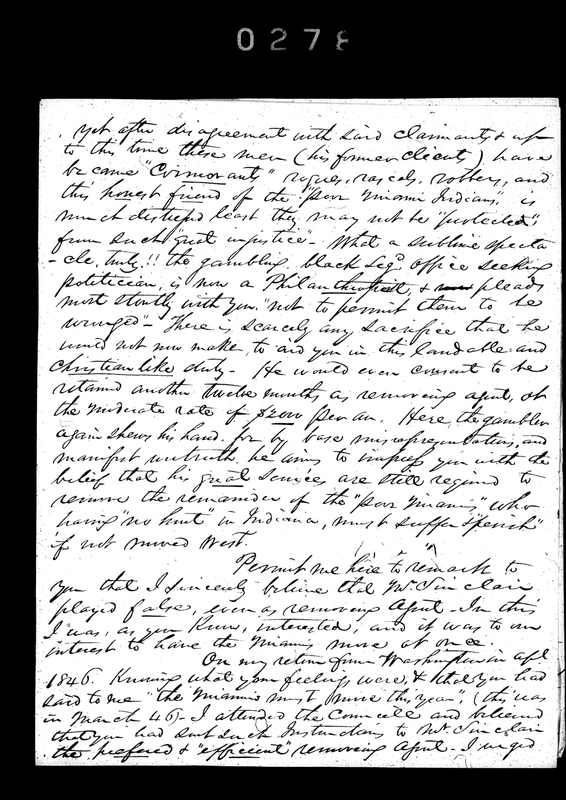 0278
. Yet after disagreement with said Claimants & up
to this time these men (his former Clients) have
became "Cormorants" rogues, rascals, robbers, and
this honest friend of the "poor Miami Indians", is
much distressed least they may not be "protected",
from such "great injustice" - What a sublime specta
-cle, truly!! the gambling, black leg, office seeking
politician, is now a Philanthropist, & pleads
most stoutly with you, "not to permit them to be
wronged" - There is scarcely any sacrifice that he
would not now make, to aid you in this laudable and
Christian like duty - He would even consent to be
retained another twelve months as removing agent, at
the moderate rate of $2000 per an. Here, the gambler
again shews his hand. for by base misrepresentations, and
manifest untruth, he aims to impress you with the
belief that his great services are still required to
remove the remainder of the "poor Miamis" who
having "no hunt" in Indiana, must suffer & "perish"
if not moved West.
Permit me here to remark to
you that I sincerely believe that Mr. Sinclair
played false, even as removing Agent - In this
I was, as you know, interested, and it was to our
interest to have the Miamis move at once.
On my return from Washington in apl.
1846. Knowing what your feelings were, & that you had
said to me "the Miamis must move this year", (this was
in March 46) - I attended the Councell and believed
that you had sent such Instructions to Mr Sinclair
the prefered & "efficient" removing Agent - I urged